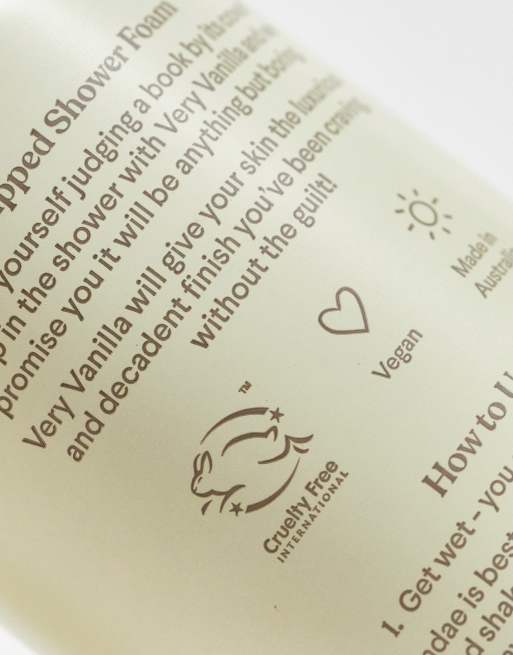 pped Shower Foam
yourself judging a book by its
in the shower with Very Vanilla
promise you it will be anything but boring
Very Vanilla will give your skin the luxurious
and decadent finish you've been craving
without the guilt!
Made in
Australia
Vegan
TM
Cruelty Free
INTERNATIONAL
How to U
1. Get wet - you
ndae is best
d shak